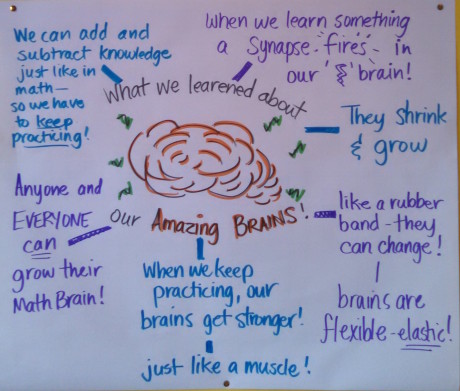 We can add and
subtract knowledge
just like in
math—
so we have
to keep
practicing!
When we learn something
a Synapse "fires" in
our brain!
What we learened about
our Amazing BRAINS!
They shrink
& grow
Anyone and
EVERYONE
can
grow their
Math Brain!
like a rubber
band - they
can change!
brains are
flexible-elastic!
When we keep
practicing, our
brains get stronger!
just like a muscle!